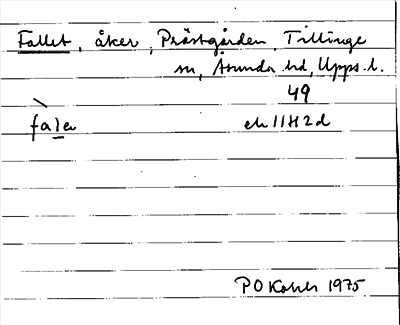 Fallet, åker, Prästgården, Tillinge
sn, Åsunda hd, Upps. l.
49
fàlen ek 11H2d
PO Kåhrs 1975